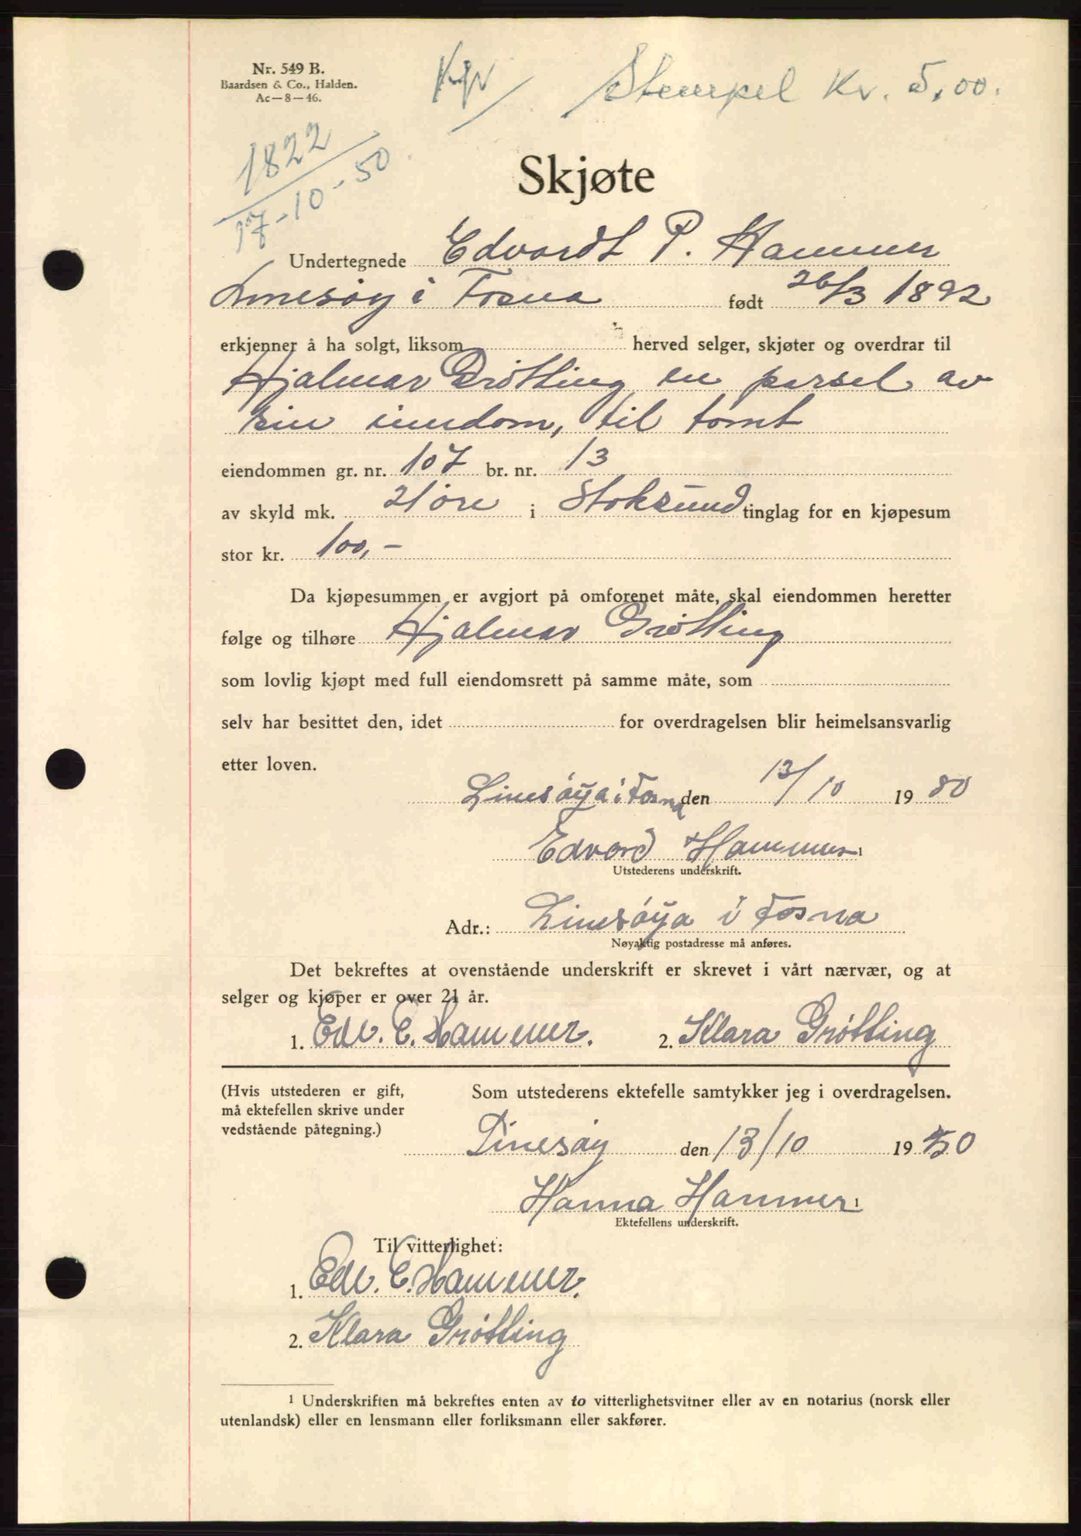 Nr. 549 B.
Baardsen & Co., Halden.
Ac—8—46.
Stempel Kr. 5,00.
1822
17-10-50
Skjøte
Undertegnede Edvardt P. Hammer
Linesøy i Fosna født 26/3 1892
erkjenner å ha solgt, liksom herved selger, skjøter og overdrar til
Hjalmar Grøtting en parsel av
sin eiendom, til tomt
eiendommen gr. nr. 107 br. nr. 13
av skyld mk. 21 øre i Stoksund tinglag for en kjøpesum
stor kr. 100,-
Da kjøpesummen er avgjort på omforenet måte, skal eiendommen heretter
følge og tilhøre Hjalmar Grøtting
som lovlig kjøpt med full eiendomsrett på samme måte, som
selv har besittet den, idet for overdragelsen blir heimelsansvarlig
etter loven.
Linesøya i Fosna den 13/10 1950
Edvard Hammer 1
Utstederens underskrift.
Adr.: Linesøya i Fosna
Nøyaktig postadresse må anføres.
Det bekreftes at ovenstående underskrift er skrevet i vårt nærvær, og at
selger og kjøper er over 21 år.
1. Edv. E. Hammer. 2. Klara Grøtting
(Hvis utstederen er gift,
må ektefellen skrive under
vedstående påtegning.)
Som utstederens ektefelle samtykker jeg i overdragelsen.
Linesøy den 13/10 1950
Hanna Hammer 1
Ektefellens underskrift.
Til vitterlighet:
1. Edv. E. Hammer.
2. Klara Grøtting
1 Underskriften må bekreftes enten av to vitterlighetsvitner eller av en notarius (norsk eller
utenlandsk) eller en lensmann eller forliksmann eller sakfører.